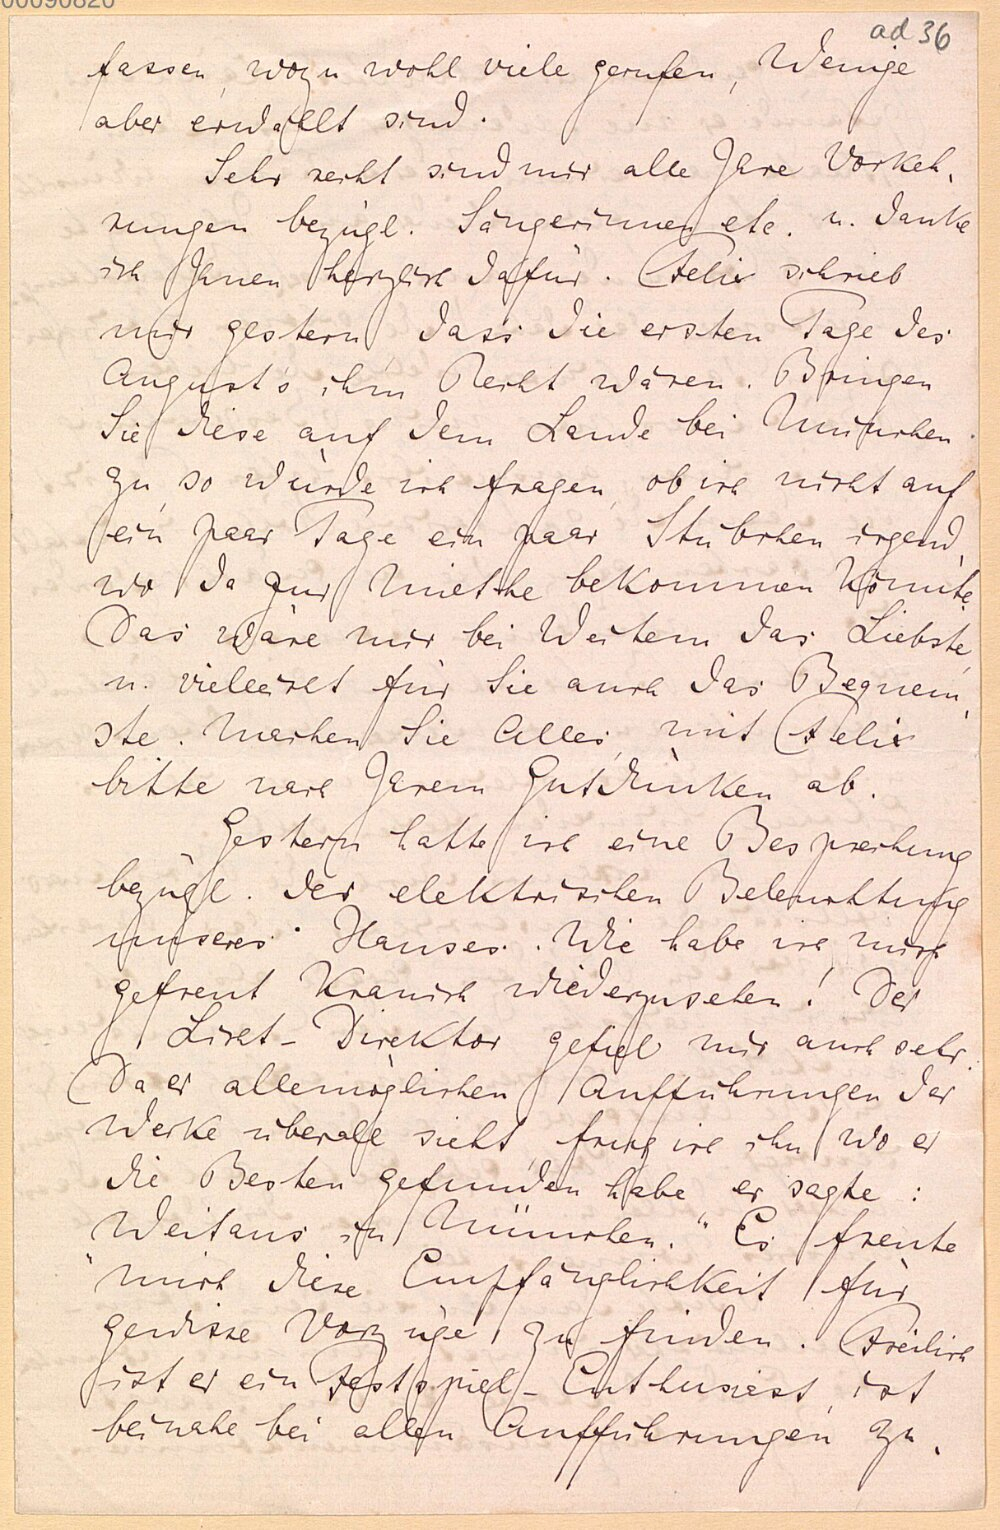 00090820
ad 36
fassen, wozu wohl viele gerufen, Wenige
aber erwählt sind.
Sehr recht sind mir alle Jhre Vorkeh,
rungen bezügl. Sängerinnen etc. u. danke
ich Jhnen herzlich dafür. Felix schrieb
mir gestern, dass die ersten Tage des
August's ihm Recht wären. Bringen
Sie diese auf dem Lande bei München
zu, so würde ich fragen, ob ich nicht auf
ein paar Tage ein paar Stübchen irgend,
wo da zur Miethe bekommen könnte.
Das wäre mir bei Weitem das Liebste,
u. vielleicht für Sie auch das Bequem,
ste. Machen Sie Alles, mit Felix
bitte nach Jhrem Gutdünken ab.
Gestern hatte ich eine Besprechung
bezügl. der elektrischen Beleuchtung
unseres Hauses. Wie habe ich mich
gefreut Kranich wiederzusehen! Der
Licht-Direktor gefiel mir auch sehr.
Da er allemöglichen Aufführungen der
Werke überall sieht, frug ich ihn, wo er
die Besten gefunden habe, er sagte:
"Weitaus in München." Es freute
mich diese Empfänglichkeit für
gewisse Vorzüge zu finden. Freilich
ist er ein Festspiel-Enthusiast, ist
beinahe bei allen Aufführungen zu,